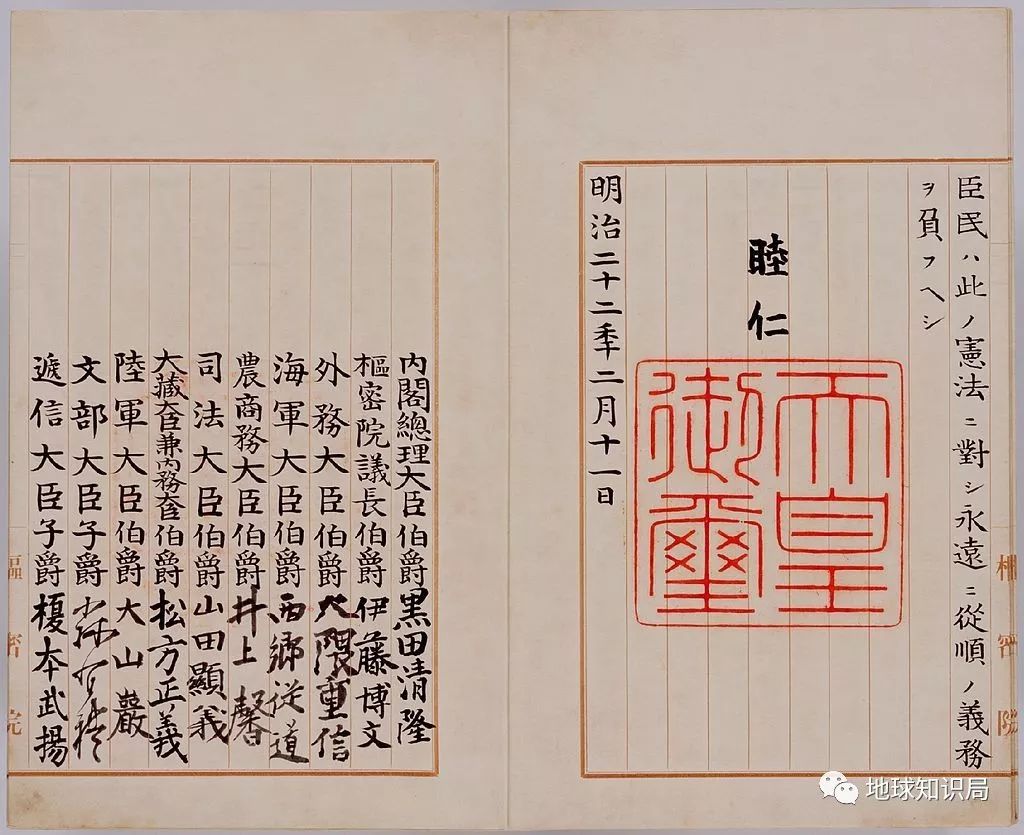 臣民ハ此ノ憲法ニ對シ永遠ニ從順ノ義務
ヲ負フヘシ
睦仁
天皇
御璽
明治二十二年二月十一日
內閣總理大臣伯爵黑田清隆
樞密院議長伯爵伊藤博文
外務大臣伯爵大隈重信
海軍大臣伯爵西鄉從道
農商務大臣伯爵井上馨
司法大臣伯爵山田顯義
大藏大臣兼內務大臣伯爵松方正義
陸軍大臣伯爵大山巖
文部大臣子爵森有禮
遞信大臣子爵榎本武揚
樞密院
樞密院
地球知识局